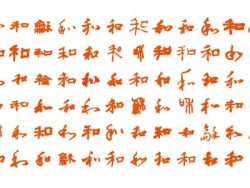 和和龢和和和和和和和和
和和和和和和和和和和和
和和龢和和和和和和和和
和和和和和和龢和和和和
和和和和和和和和和龢和
和和龢和和和和和和和和